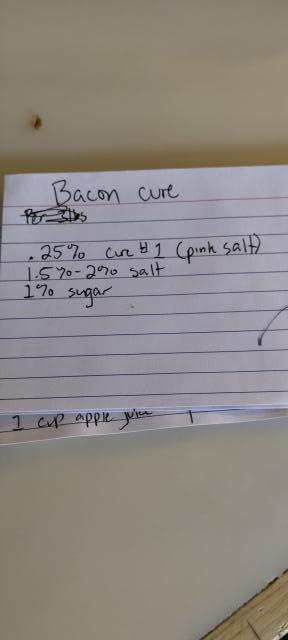 Bacon cure
Per 3lbs
.25% cure #1 (pink salt)
1.5%-2% salt
1% sugar
1 cup apple juice